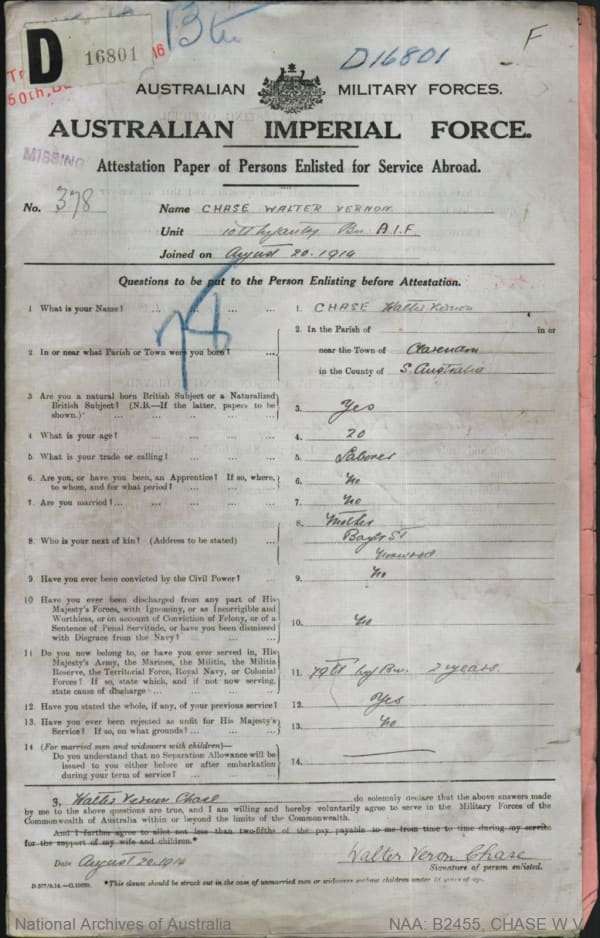 D 16801
13th
D16801
F
16
50th,
AUSTRALIAN MILITARY FORCES.
AUSTRALIAN IMPERIAL FORCE.
MISSING
Attestation Paper of Persons Enlisted for Service Abroad.
No. 378 Name CHASE WALTER VERNON
Unit 10th Infantry Bn A.I.F
Joined on August 20.1914
Questions to be put to the Person Enlisting before Attestation.
78
1 What is your Name? ... ... ... ... 1. CHASE Walter Vernon
2 In or near what Parish or Town were you born? ... 2. In the Parish of in or
near the Town of Clarendon
in the County of S. Australia
3 Are you a natural born British Subject or a Naturalized
British Subject? (N.B.—If the latter, papers to be
shown.) ... ... ... ... 3. Yes
4 What is your age? ... ... ... ... 4. 20
5 What is your trade or calling? ... ... ... 5. Laborer
6. Are you, or have you been, an Apprentice? If so, where,
to whom, and for what period? ... ... ... 6. No
7. Are you married? ... ... ... ... ... 7. No
8 Who is your next of kin? (Address to be stated) ... 8. Mother
St
Norwood
9 Have you ever been convicted by the Civil Power? ... 9. No
10 Have you ever been discharged from any part of His
Majesty's Forces, with Ignominy, or as Incorrigible and
Worthless, or on account of Conviction of Felony, or of a
Sentence of Penal Servitude, or have you been dismissed
with Disgrace from the Navy? ... ... ... 10. No
11 Do you now belong to, or have you ever served in, His
Majesty's Army, the Marines, the Militia, the Militia
Reserve, the Territorial Force, Royal Navy, or Colonial
Forces? If so, state which, and if not now serving,
state cause of discharge ... ... ... ... 11. 79th Inf Bn. 2 years.
12. Have you stated the whole, if any, of your previous service? 12. Yes
13. Have you ever been rejected as unfit for His Majesty's
Service? If so, on what grounds? ... ... ... 13. No
14 (For married men and widowers with children)—
Do you understand that no Separation Allowance will be
issued to you either before or after embarkation
during your term of service? ... ... ... 14.
I, Walter Vernon Chase do solemnly declare that the above answers made
by me to the above questions are true, and I am willing and hereby voluntarily agree to serve in the Military Forces of the
Commonwealth of Australia within or beyond the limits of the Commonwealth.
And I further agree to allot not less than two-fifths of the pay payable to me from time to time during my service
for the support of my wife and children.*
Date August 20.1914 Walter Veron Chase
Signature of person enlisted.
*This clause should be struck out in the case of unmarried men or widowers without children under 18 years of age.
National Archives of Australia NAA: B2455, CHASE W V